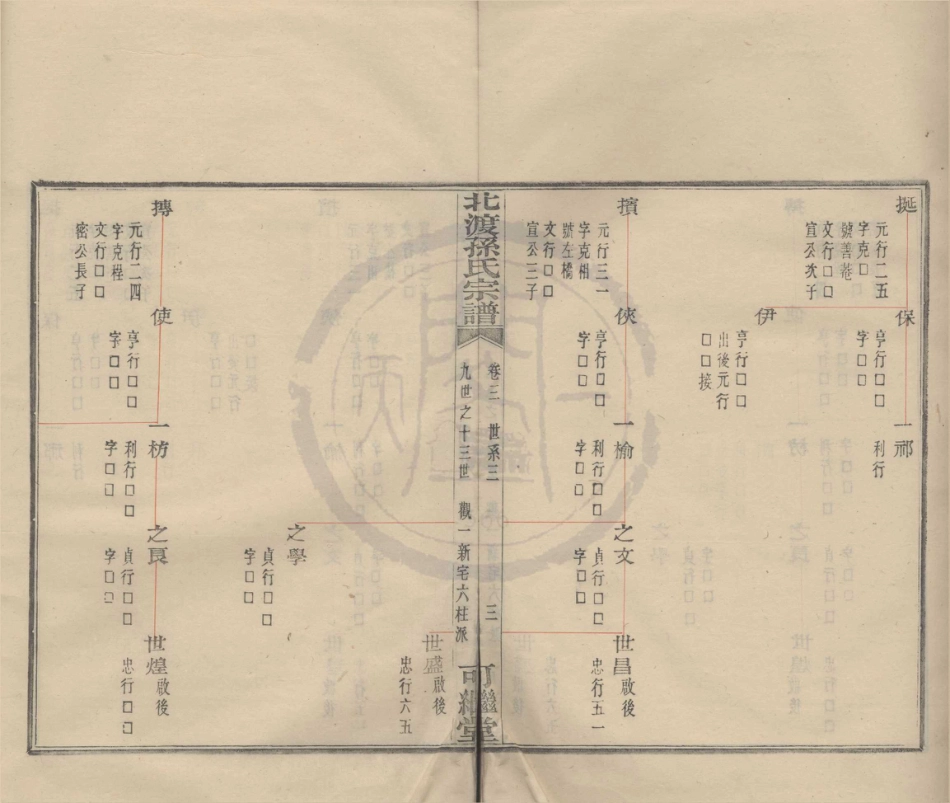 挻
元行二五
字克□
號善菴
文行□□
宣公次子
保
亨行□□
字□□
一祁
利行
伊
亨行□□
出後元行
□□接
擯
元行三一
字克相
號左橋
文行□□
宣公三子
俠
亨行□□
字□□
一榆
利行□□
字□□
之文
貞行□□
字□□
世昌啟後
忠行五一
北渡孫氏宗譜
卷三 世系三 三
九世之十三世 觀一新宅六柱派
可繼堂
世盛啟後
忠行六五
之學
貞行□□
字□□
摶
元行二四
字克程
文行□□
密公長子
使
亨行□□
字□□
一枋
利行□□
字□□
之良
貞行□□
字□□
世煌啟後
忠行□□